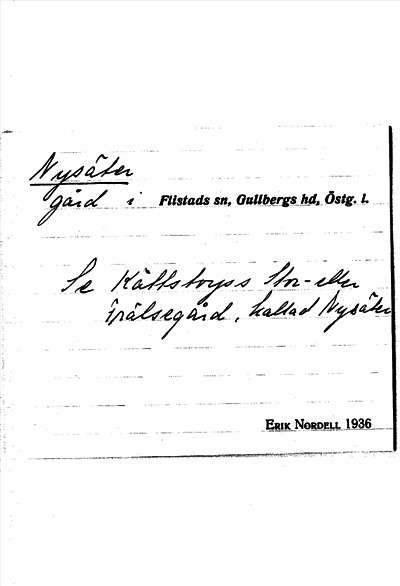 Nysäter
gård i Flistads sn, Gullbergs hd, Östg. l.
Se Kättstorps Stor- eller
frälsegård, kallad Nysäter
ERIK NORDELL 1936